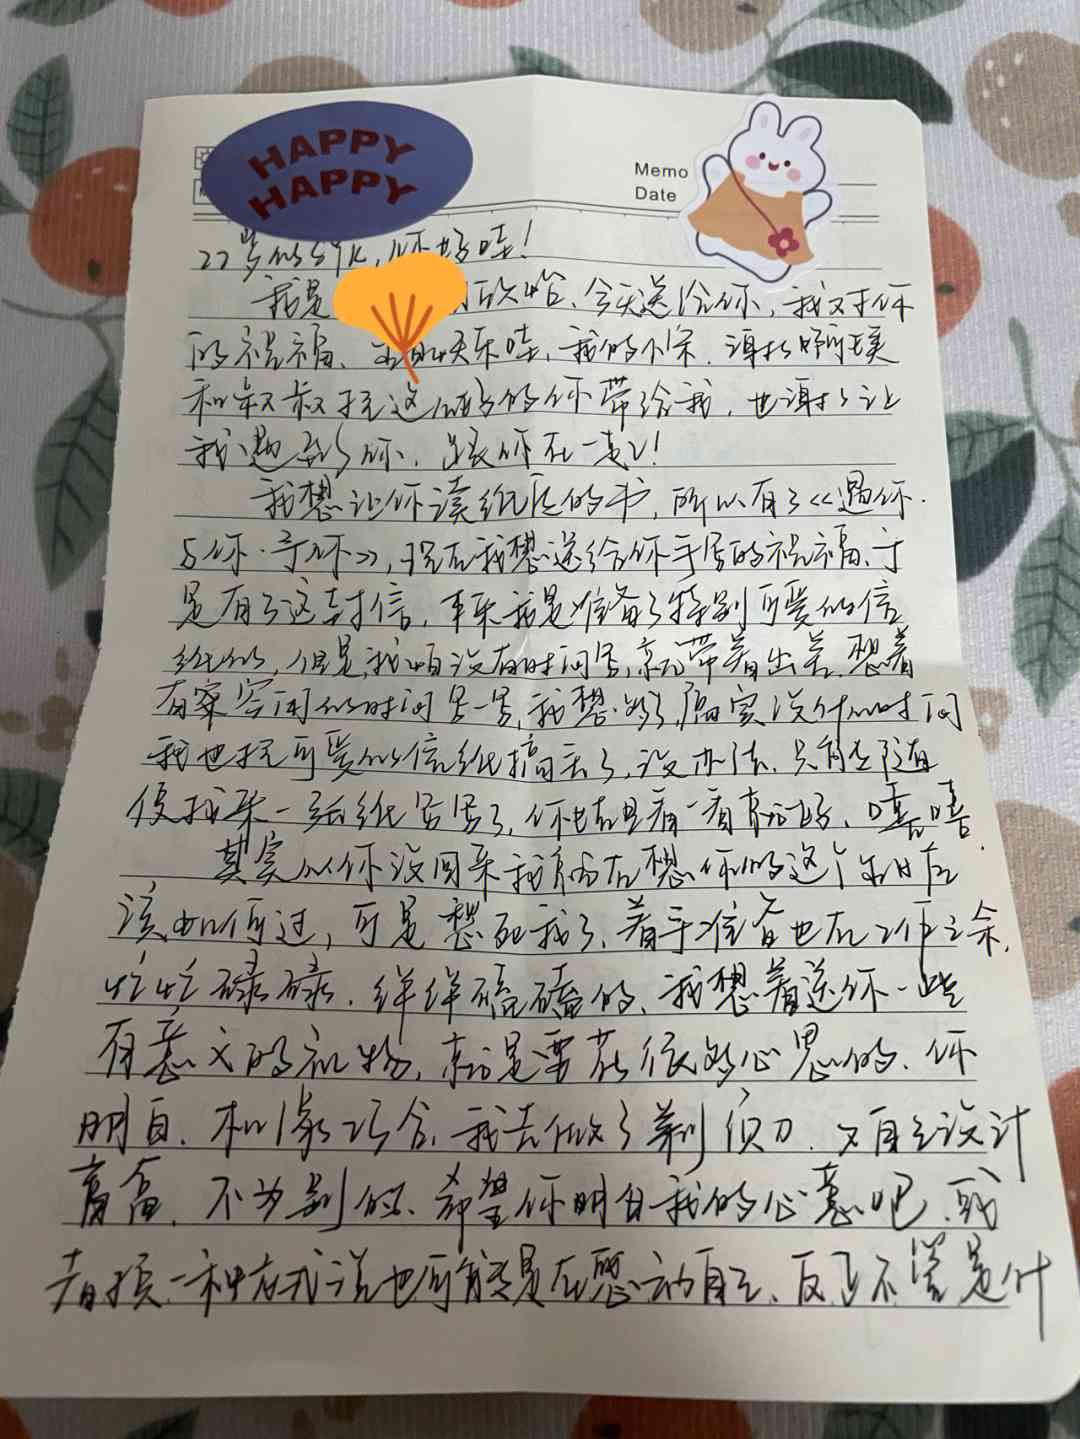 HAPPY
HAPPY
Memo
Date
27岁的，你好哇！
我是 今天送给你，我对你
的祝福、生日快乐哇，我的小，谢谢阿姨
和叔叔把这么好的你带给我，也谢谢让
我遇到了你，跟你在一起！
我想让你读纸质的书，所以有了《遇你·
与你·予你》，现在我想送给你手写的祝福、于
是有了这封信，本来我是准备了特别可爱的信
纸的，但是我咱没有时间写，就带着出差，想着
有空闲的时间写一写，我想多了，确实没什么时间
我也把可爱的信纸搞丢了，没办法、只有随
便找来一张纸写写了，你也看一看就好、嘻嘻
其实从你没回来我就在想你的这个生日应
该如何过，可是想死我了、着手准备也在工作之余，
忙忙碌碌、绊绊磕磕的、我想着送你一些
有意义的礼物，就是要花很多心思的、你
明白、机缘巧合，我去做了剃须刀、又自己设计
，不少别的、希望你明白我的心意吧、或
者换一种方式说也可能是在感动自己、反正不管是什